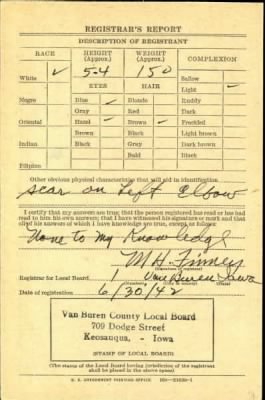 REGISTRAR'S REPORT
DESCRIPTION OF REGISTRANT
RACE HEIGHT (Approx.) WEIGHT (Approx.) COMPLEXION
White ✓ 5-4 150 Sallow
EYES HAIR Light
Negro Blue Blonde Ruddy
Gray Red Dark
Oriental Hazel Brown Freckled
Brown Black Light brown
Indian Black Gray Dark brown
Bald Black
Filipino
Other obvious physical characteristics that will aid in identification
Scar on Left Elbow
I certify that my answers are true; that the person registered has read or has had
read to him his own answers; that I have witnessed his signature or mark and that
all of his answers of which I have knowledge are true, except as follows:
None to my Knowledge
M.H. Finney
(Signature of registrar)
Registrar for Local Board 1 Van Buren Iowa
Date of registration 6/30/42
Van Buren County Local Board
709 Dodge Street
Keosauqua, - Iowa
(STAMP OF LOCAL BOARD)
(The stamp of the Local Board having jurisdiction of the registrant
shall be placed in the above space)
U. S. GOVERNMENT PRINTING OFFICE